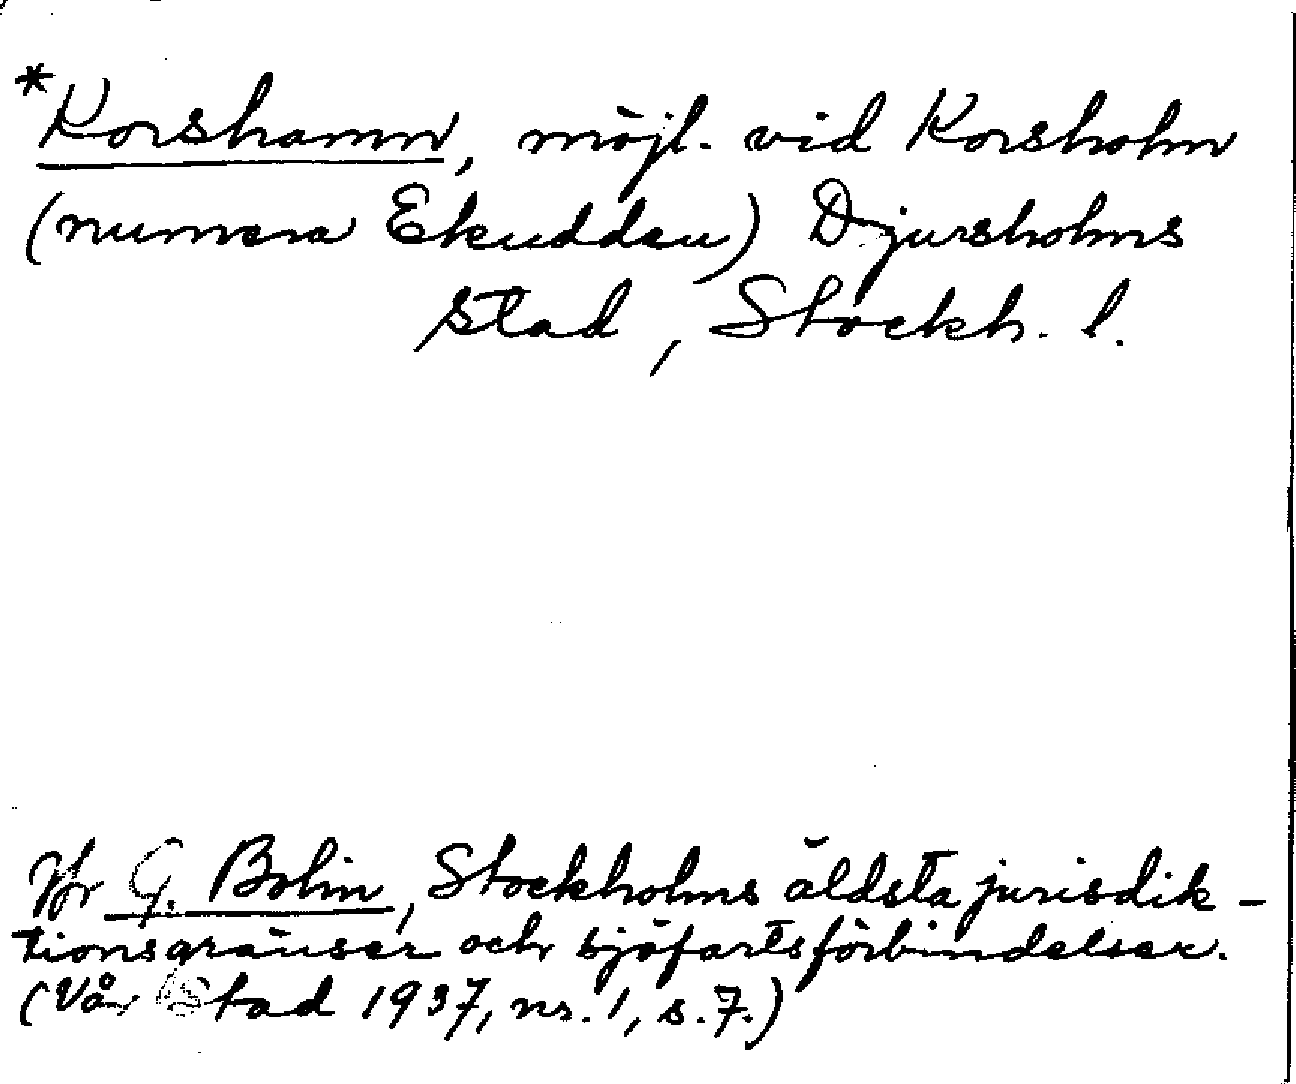 *Korshamn, möjl. vid Korsholm
(numera Ekudden) Djursholms
stad, Stockh. l.
Jfr G. Bolin, Stockholms äldsta jurisdik-
tionsgränser och sjöfartsförbindelser.
(Vår Stad 1937, nr. 1, s. 7.)